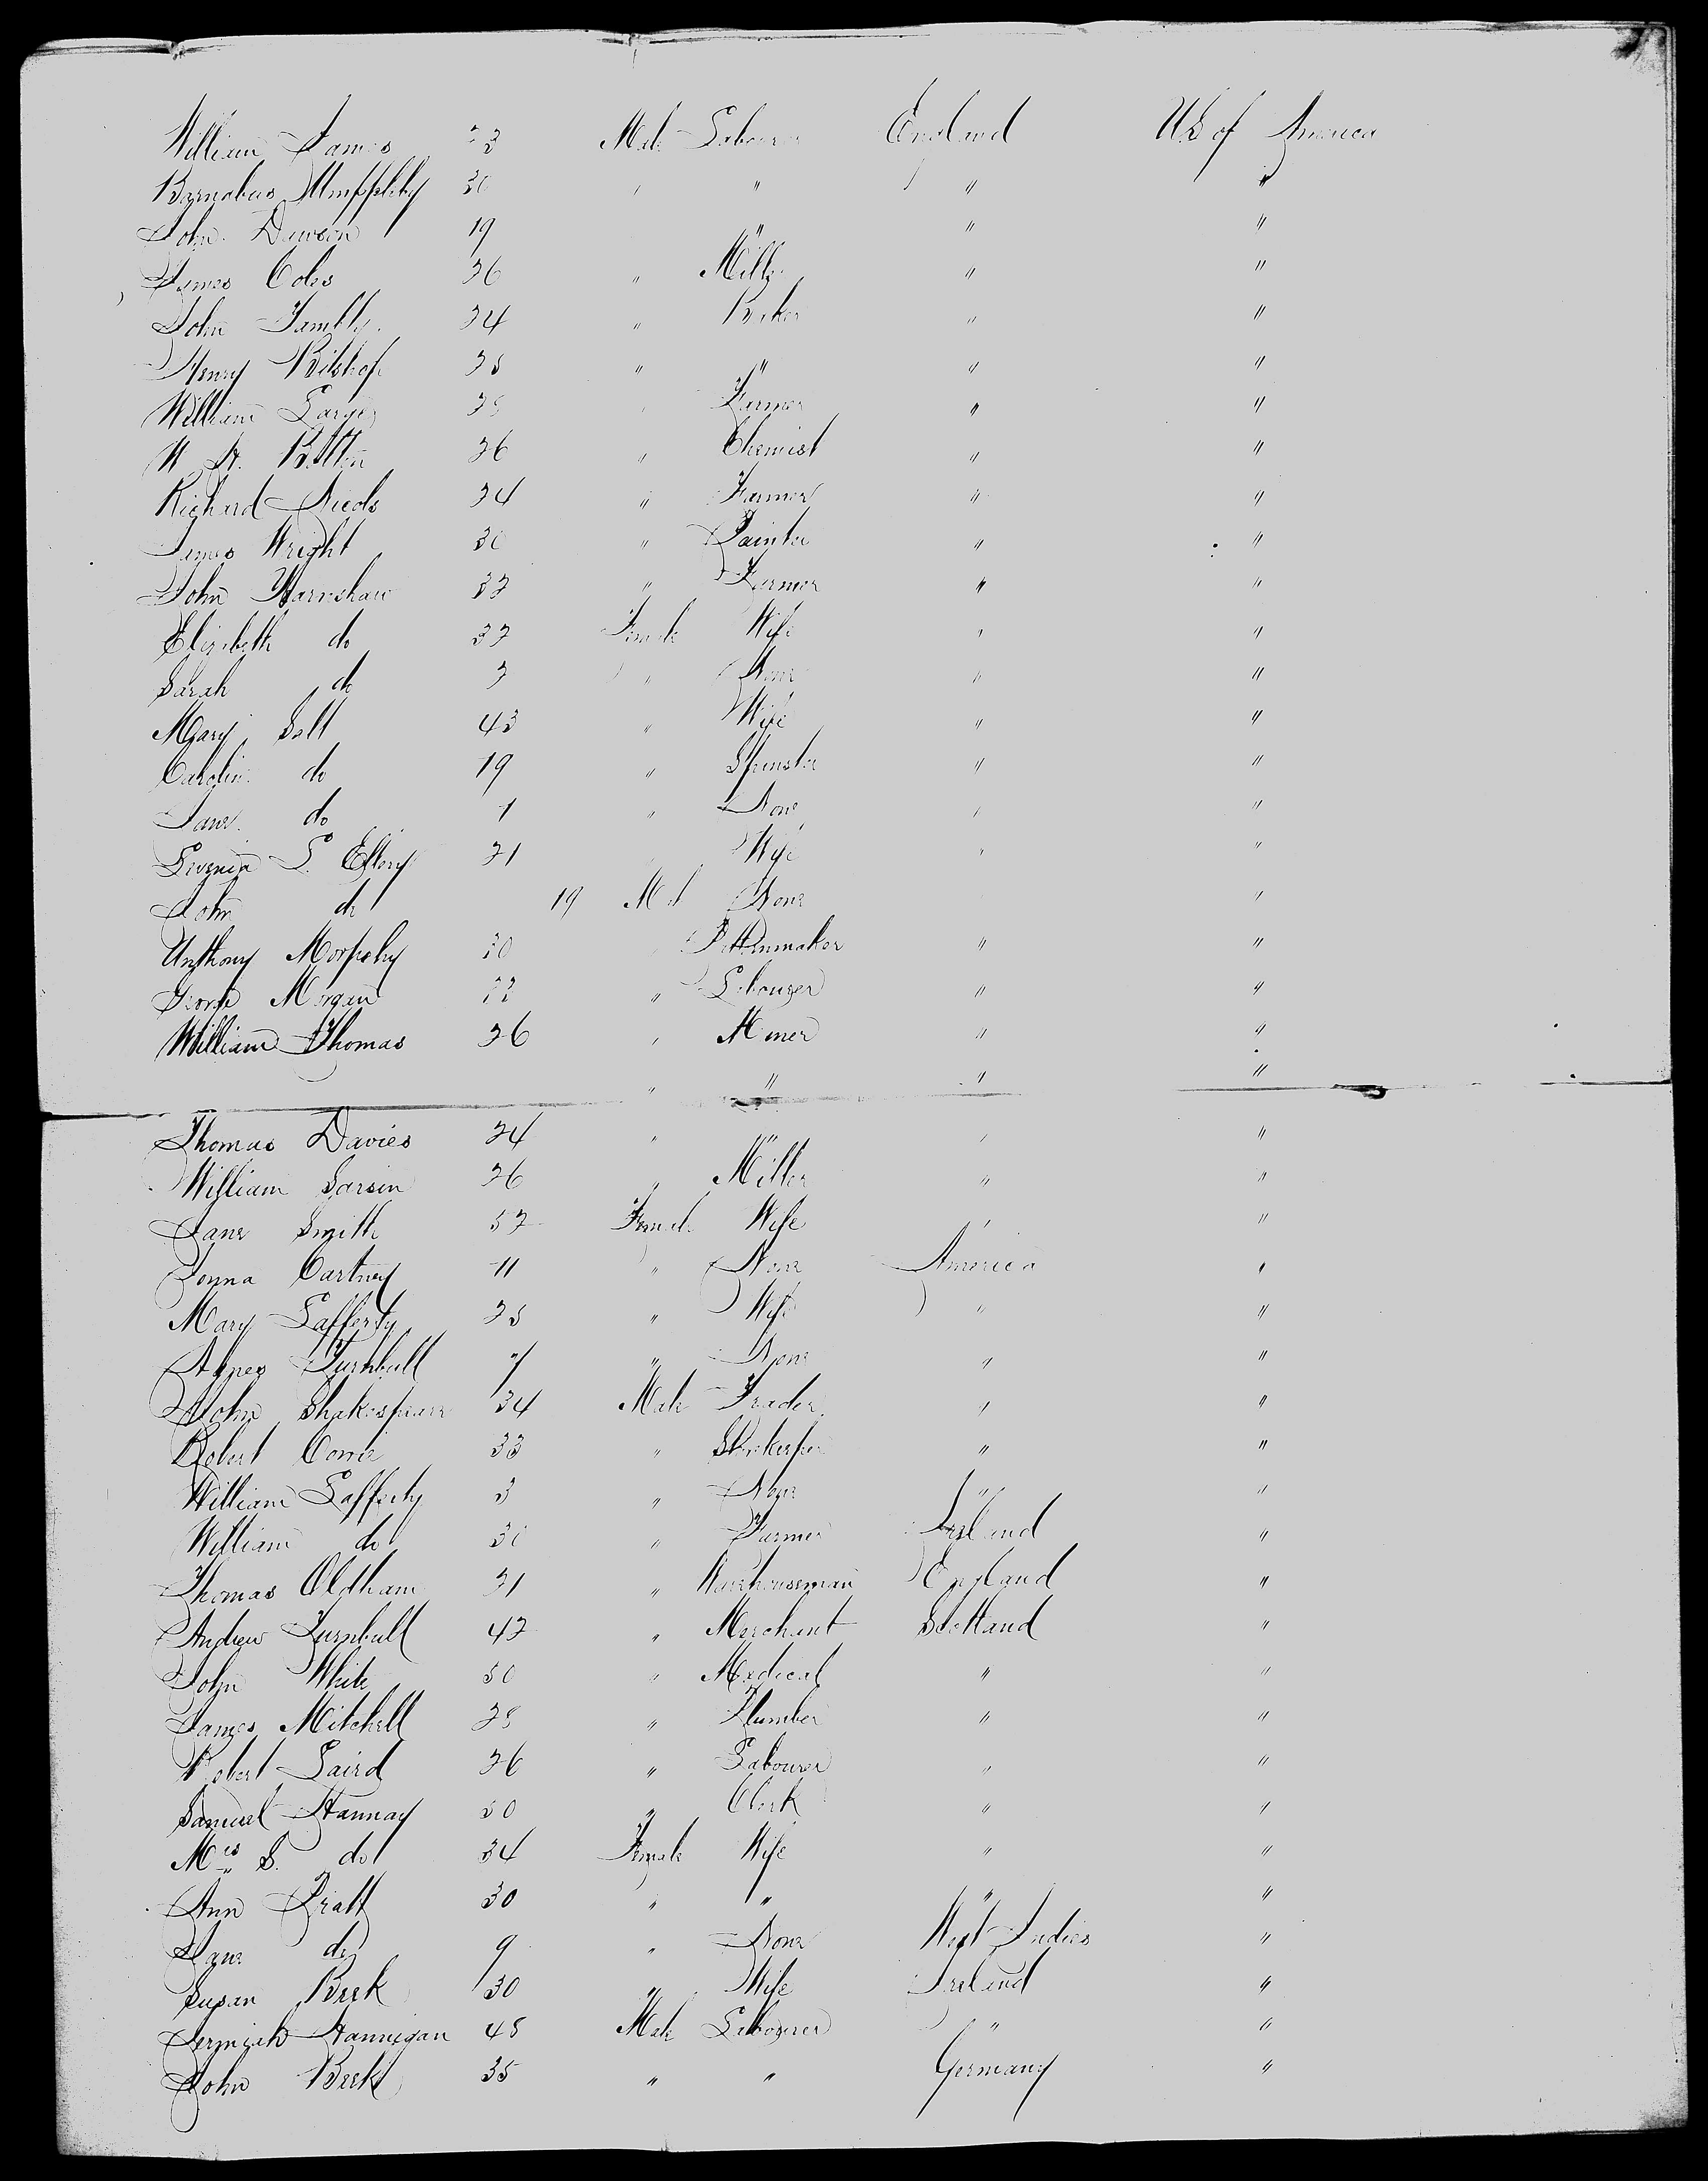 William James 23 Male Labourer England US of America
Barnabus 30 " " " "
John Dawson 19 " " "
James Coles 26 " Miller " "
John 24 " Baker " "
Henry Bishop " " " "
William Large " Farmer " "
26 " Chemist " "
Richard Nicols 24 " Farmer " "
James Wright 30 " Painter " "
John Harnshaw 32 " Farmer " "
Elizabeth do 32 Female Wife " "
Sarah do 2 " None " "
Mary Salt 43 " Wife " "
Caroline do 19 " Spinster " "
Jane do 1 " None " "
L. Ellery 21 " Wife " "
John do 19 Male None "
Anthony 30 " Patternmaker " "
George Morgan 22 " Labourer " "
William Thomas 26 " Miner " "
" " " "
Thomas Davies 24 " " " "
William 26 " Miller " "
Jane Smith 52 Female Wife " "
Cartney 11 " None America "
Mary Lafferty 25 " Wife " "
Agnes Turnbull 7 " None " "
John Shakespeare 34 Male Trader " "
Robert 33 " Storekeeper " "
William Lafferty 3 " None " "
William do 30 " Farmer Ireland "
Thomas Oldham 21 " Warehouseman England "
Andrew Turnbull 42 " Merchant Scotland "
John White 50 " Medical " "
James Mitchell 28 " Plumber " "
Robert Laird 26 " Labourer " "
Samuel Hannay 50 " Clerk " "
Mrs S. do 34 Female Wife " "
Ann Pratt 30 " " " "
Jane do 9 " None West Indies "
Susan Beek 30 " Wife Ireland "
Jermiah Hannigan 48 Male Labourer " "
John Beek 35 " " Germany "